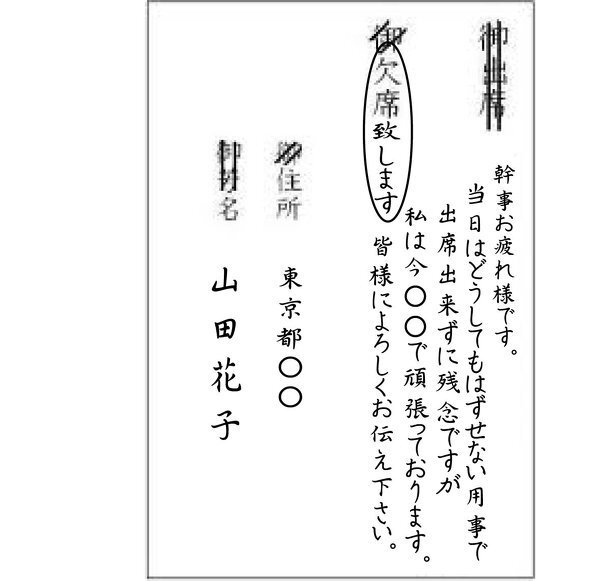 御出席
幹事お疲れ様です。
当日はどうしてもはずせない用事で
出席出来ずに残念ですが
私は今〇〇で頑張っております。
御欠席致します
皆様によろしくお伝え下さい。
御住所
東京都〇〇
御芳名
山田花子